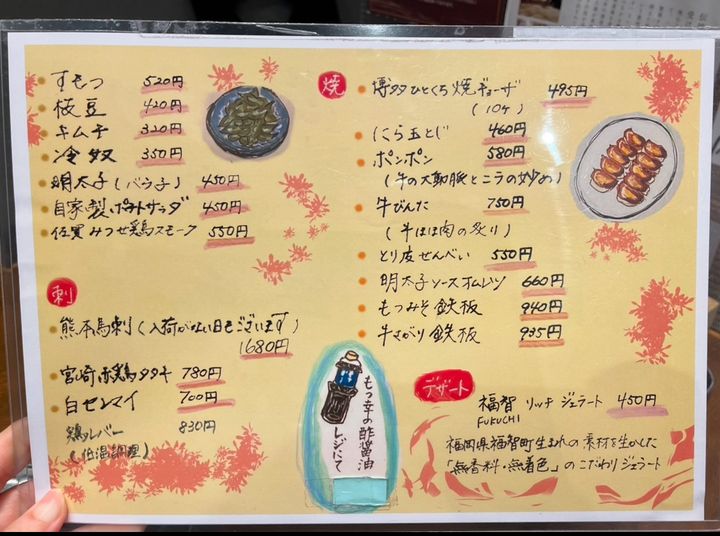 すもつ 520円
枝豆 420円
キムチ 320円
冷奴 350円
明太子(バラ子) 450円
自家製ポテトサラダ 450円
佐賀みつせ鶏スモーク 550円
刺
熊本馬刺(入荷がない日もございます)
1680円
宮崎赤鶏タタキ 780円
白センマイ 700円
鶏レバー 830円
(低温調理)
焼
博多ひとくち焼ギョーザ 495円
(10ケ)
にら玉とじ 460円
ポンポン 580円
(牛の大動脈とニラの炒め)
牛びんた 750円
(牛ほほ肉の炙り)
とり皮せんべい 550円
明太子ソースオムレツ 660円
もつみそ鉄板 940円
牛さがり鉄板 935円
もつ幸の酢醤油
レジにて
デザート
福智 リッチ ジェラート 450円
FUKUCHI
福岡県福智町生まれの素材を生かした
「無香料・無着色」のこだわりジェラート